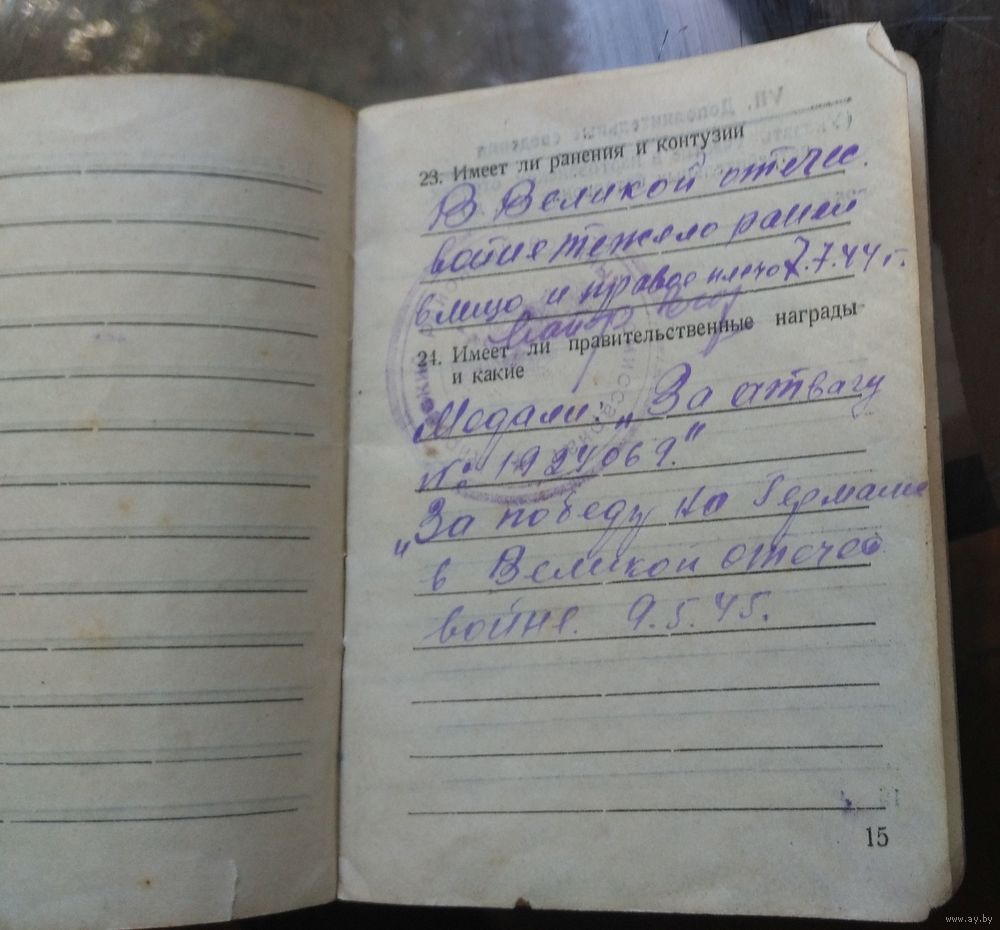 23. Имеет ли ранения и контузии
В Великой отечес.
войне тяжело ранен
в лицо и правое плечо 7.7.44 г.
Майор
24. Имеет ли правительственные награды
и какие
Медали: „За отвагу
№ 1924069."
„За победу на Германией
в Великой отечес
войне. 9.5.45.
15
www.ay.by